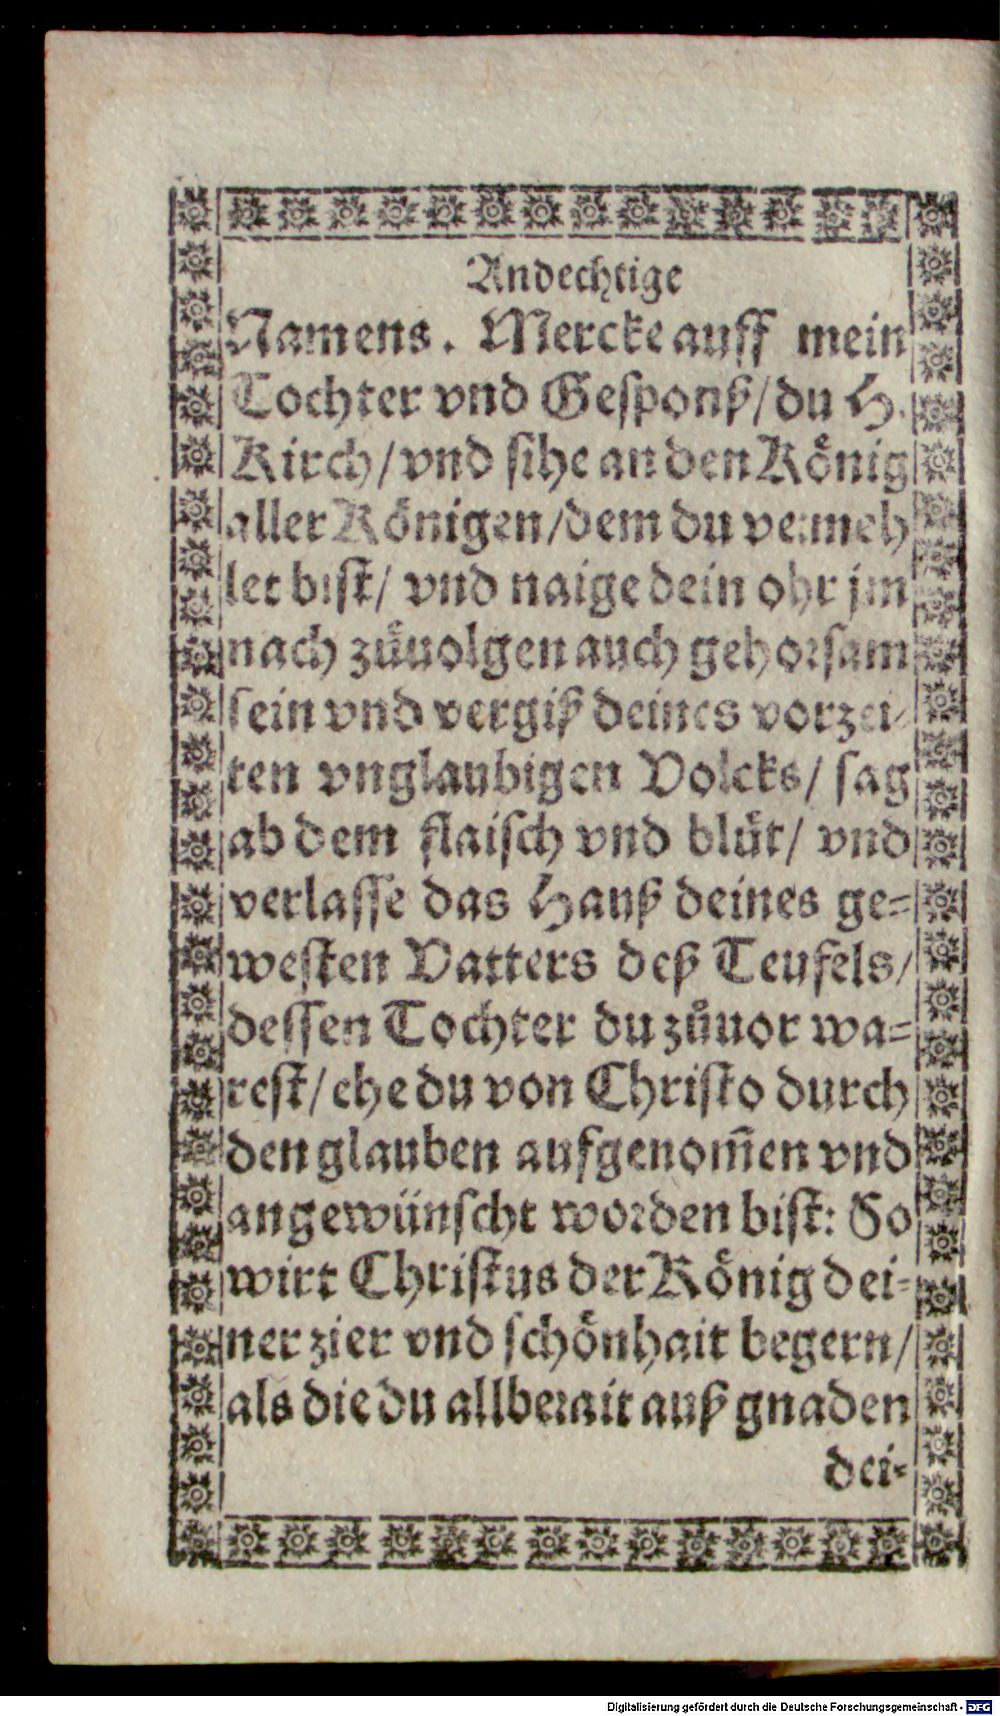 Andechtige
Namens. Mercke auff mein
Tochter vnd Gesponß/ du H.
Kirch/ vnd sihe an den König
aller Königen/ dem du vermeh
let bist/ vnd naige dein ohr jm
nach zůuolgen auch gehorsam
sein vnd vergiß deines vorzei-
ten vnglaubigen Volcks/ sag
ab dem flaisch vnd blůt/ vnd
verlasse das Hauß deines ge=
westen Vatters deß Teufels/
dessen Tochter du zůuor wa=
rest/ ehe du von Christo durch
den glauben aufgenom̃en vnd
angewünscht worden bist: So
wirt Christus der König dei=
ner zier vnd schönhait begern/
als die du allberait auß gnaden
dei=
Digitalisierung gefördert durch die Deutsche Forschungsgemeinschaft - DFG